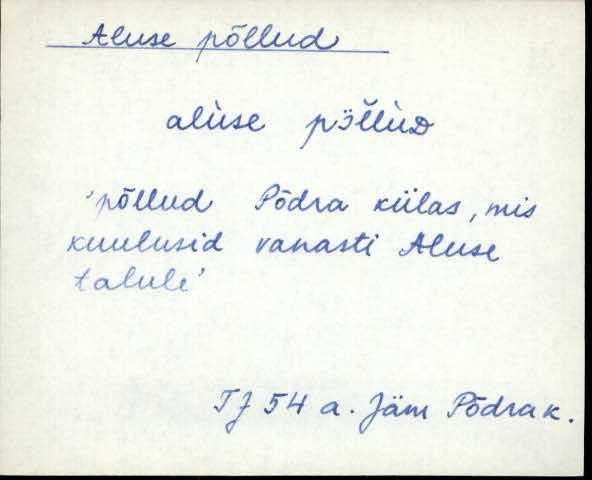 Aluse põllud
aluse pɜ̈l̆luD
'põllud Põdra külas, mis
kuulusid vanasti Aluse
talule'
TJ 54 a. Jäm Põdra k.